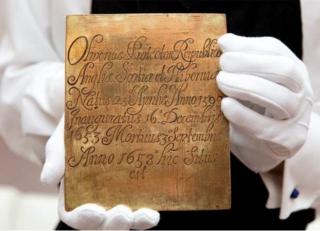 Oliverius Protector Reipublicæ
Angliæ Scotiæ et Hiberniæ
Natus 25 Aprilis Anno 1599
Inauguratus 16 Decembris
1653 Mortuus 3 Septembris
Anno 1658 hic Situs
est